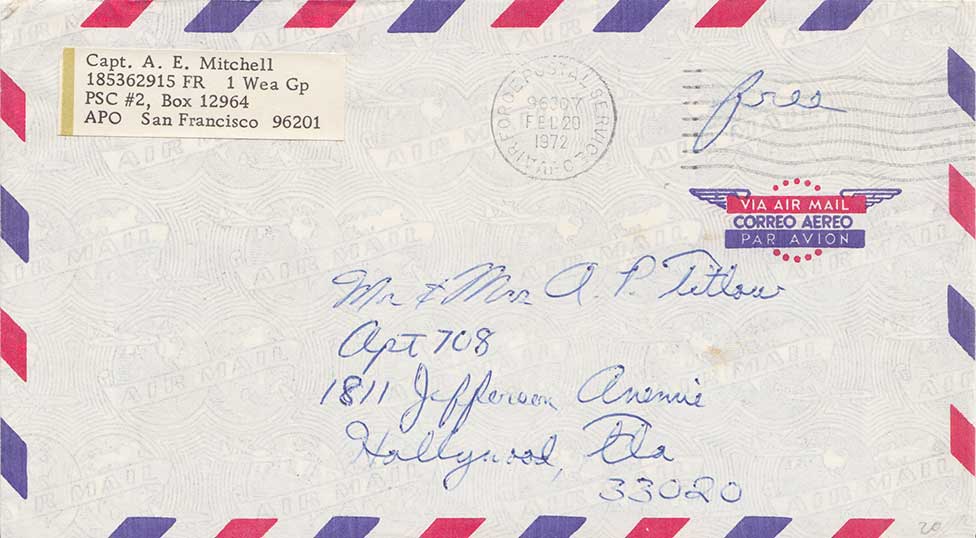 Capt. A. E. Mitchell
185362915 FR 1 Wea Gp
PSC #2, Box 12964
APO San Francisco 96201
AIR FORCE POSTAL SERVICE
96307
FEB 20
1972
free
VIA AIR MAIL
CORREO AEREO
PAR AVION
Mr & Mrs A. P. Titlow
Apt 708
1811 Jefferson Avenue
Hollywood, Fla
33020
20
AIR MAIL